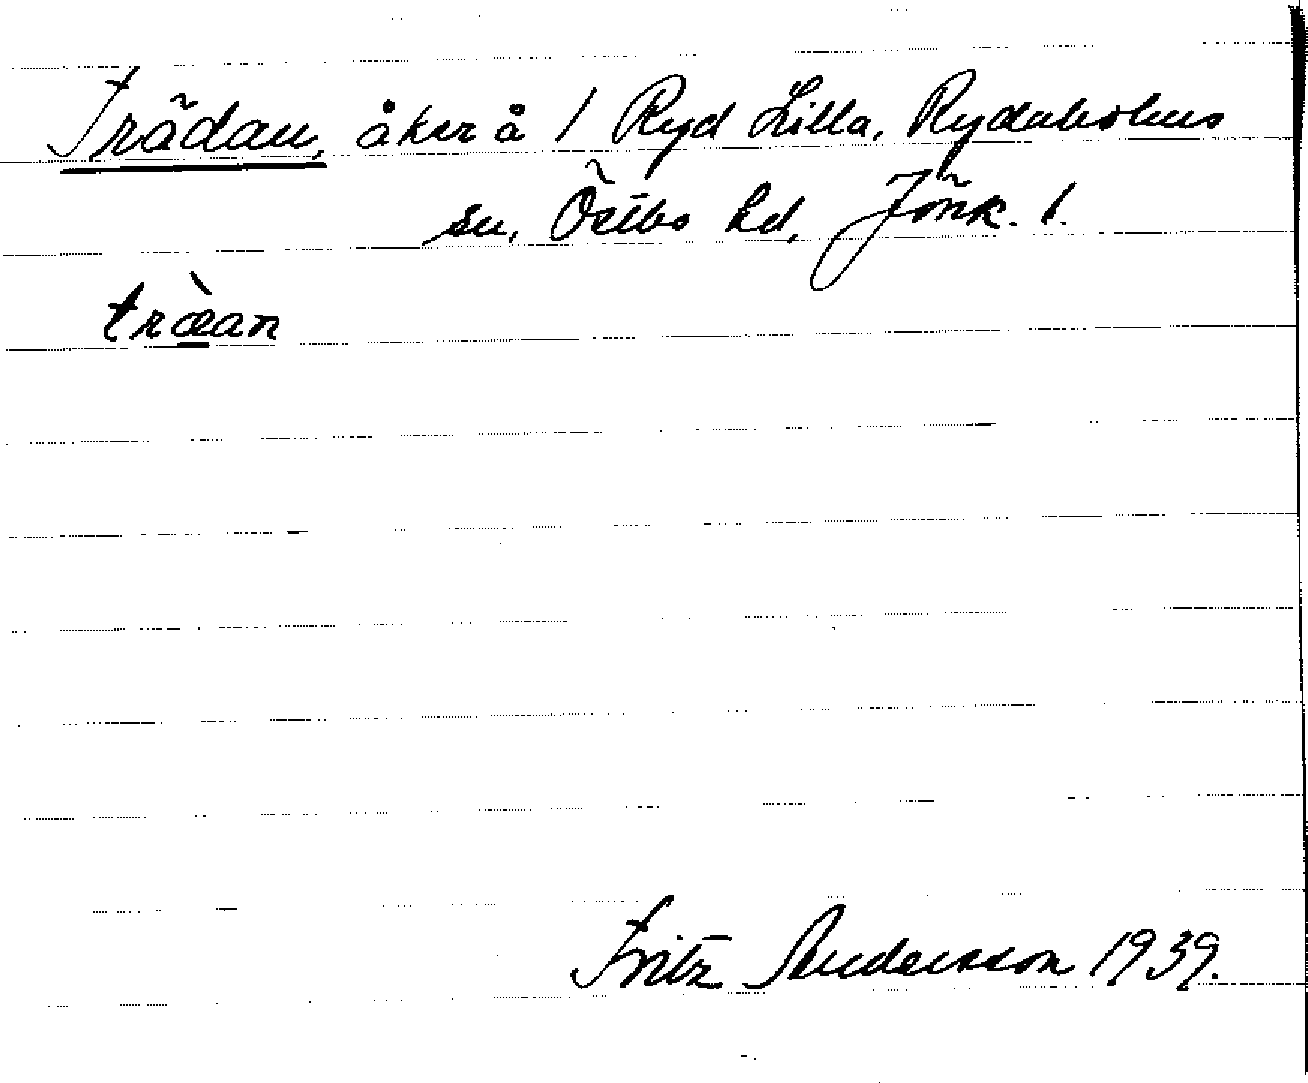 Trädan, åker å 1 Ryd Lilla, Rydaholms
sn, Östbo hd, Jönk. l.
træ̀an
Fritz Andersson 1939.